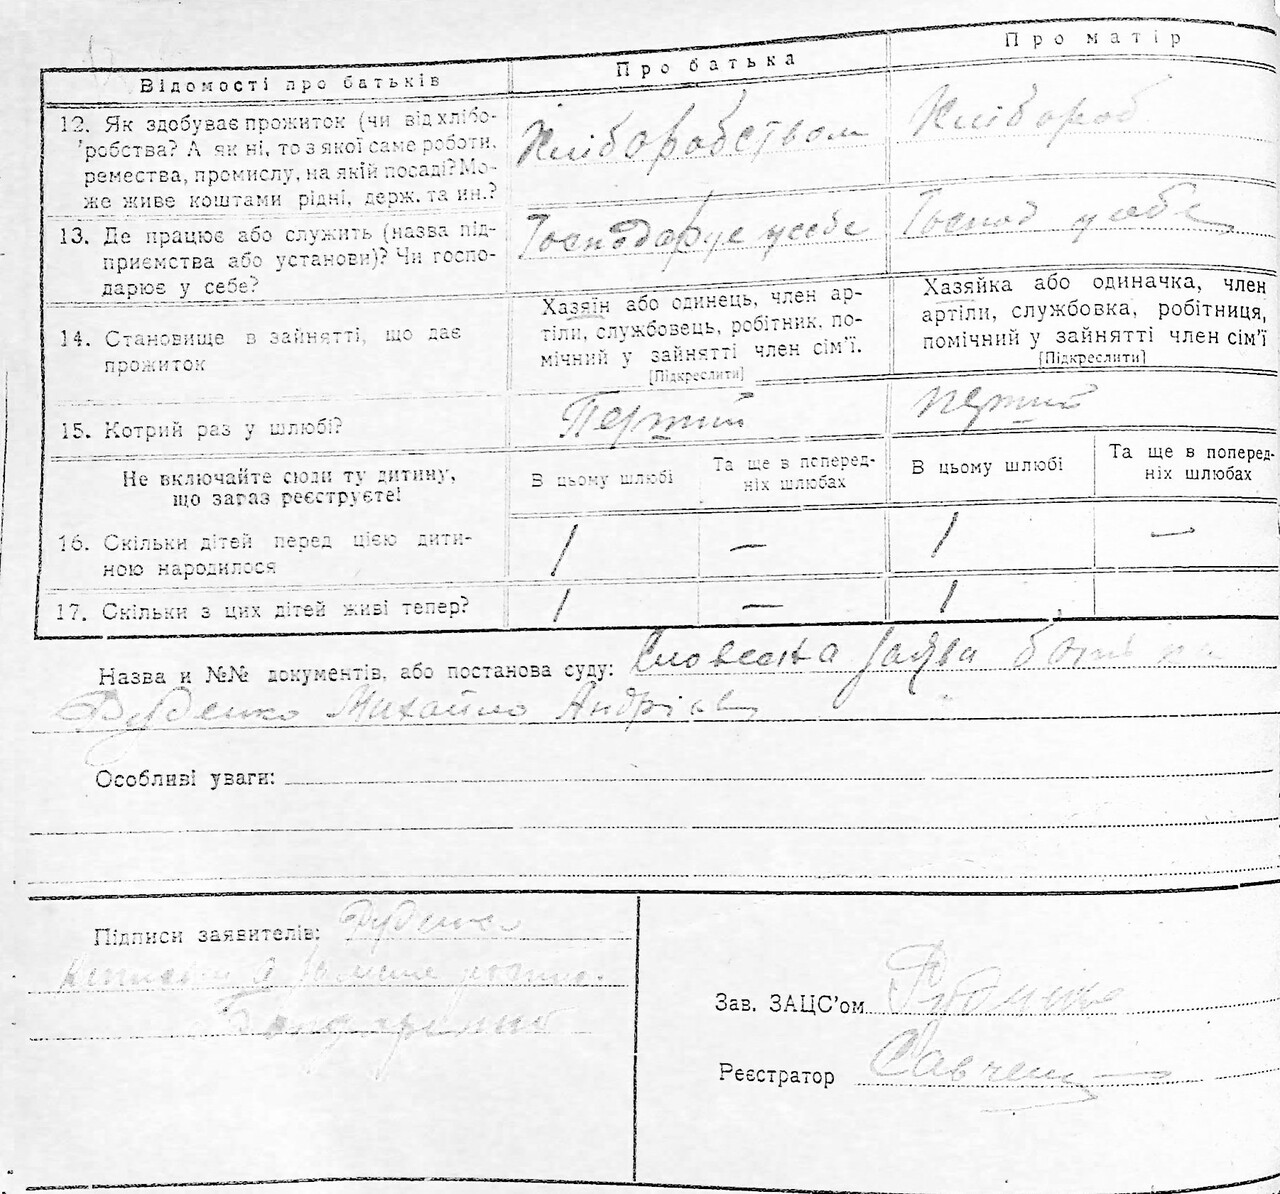 Відомості про батьків
Про батька
Про матір
12. Як здобуває прожиток (чи від хлібо-
робства? А як ні, то з якої саме роботи,
ремества, промислу, на якій посаді? Мо-
же живе коштами рідні, держ. та ин.?
Хліборобством
Хлібороб
13. Де працює або служить (назва під-
приємства або установи)? Чи госпо-
дарює у себе?
Господарує у себе
Господ у себе
14. Становище в зайнятті, що дає
прожиток
Хазяїн або одинець, член ар-
тіли, службовець, робітник, по-
мічний у зайнятті член сім'ї.
[Підкреслити]
Хазяйка або одиначка, член
артіли, службовка, робітниця,
помічний у зайнятті член сім'ї
[Підкреслити]
15. Котрий раз у шлюбі?
Перший
перший
Не включайте сюди ту дитину,
що зараз реєструєте!
В цьому шлюбі
Та ще в поперед-
ніх шлюбах
В цьому шлюбі
Та ще в поперед-
ніх шлюбах
16. Скільки дітей перед цією дити-
ною народилося
1
—
1
—
17. Скільки з цих дітей живі тепер?
1
—
1
Назва и №№ документів, або постанова суду: Словесна заява батька
Дуденко Михайло Андрієв
Особливі уваги:
Підписи заявителів:
Зав. ЗАЦС'ом
Реєстратор Савчен